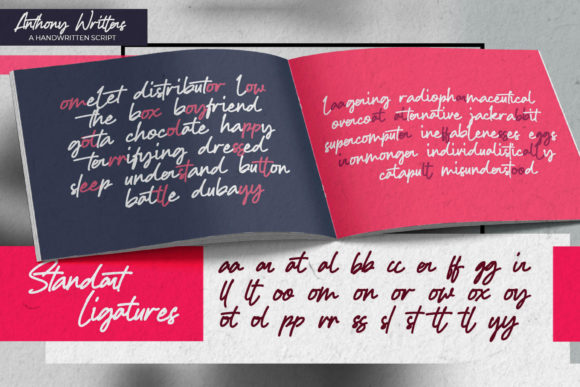 Anthony Writters
A HANDWRITTEN SCRIPT
omelet distributor low
the box boyfriend
gotta chocolate happy
terrifying dressed
sleep understand button
battle dubayy
Laagering radiopharmaceutical
overcoat alternative jackerabbit
supercomputer ineffablenesses eggs
ironmonger individualistically
catapult misunderstood
Standart
Ligatures
aa ar at al bb cc er ff gg ir
ll lt oo om on or ow ox oy
ot ol pp rr ss sl st tt tl yy